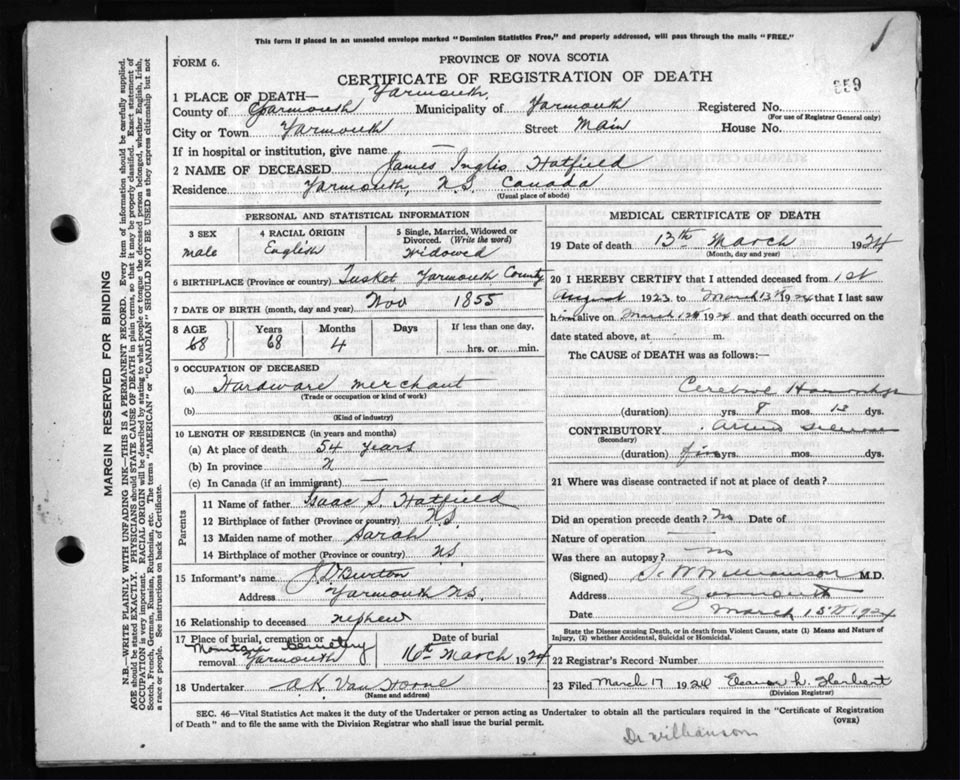 This form if placed in an unsealed envelope marked "Dominion Statistics Free," and properly addressed, will pass through the mails "FREE."
FORM 6.
PROVINCE OF NOVA SCOTIA
CERTIFICATE OF REGISTRATION OF DEATH
859
1 PLACE OF DEATH— Yarmouth,
County of Yarmouth Municipality of Yarmouth Registered No.
(For use of Registrar General only)
City or Town Yarmouth Street Main House No.
If in hospital or institution, give name —
2 NAME OF DECEASED James Inglis Hatfield
Residence Yarmouth, N.S. Canada
(Usual place of abode)
PERSONAL AND STATISTICAL INFORMATION
3 SEX male
4 RACIAL ORIGIN English
5 Single, Married, Widowed or Divorced. (Write the word) Widowed
6 BIRTHPLACE (Province or country) Tusket Yarmouth County
7 DATE OF BIRTH (month, day and year) Nov 1855
8 AGE Years Months Days If less than one day,
68 68 4 hrs. or min.
9 OCCUPATION OF DECEASED
(a) Hardware merchant
(Trade or occupation or kind of work)
(b)
(Kind of industry)
10 LENGTH OF RESIDENCE (in years and months)
(a) At place of death 54 years
(b) In province
(c) In Canada (if an immigrant) —
Parents
11 Name of father Isaac S. Hatfield
12 Birthplace of father (Province or country) N.S.
13 Maiden name of mother Sarah
14 Birthplace of mother (Province or country) NS
15 Informant's name Burton
Address Yarmouth N.S.
16 Relationship to deceased nephew
17 Place of burial, cremation or removal Mountain Cemetery Yarmouth
Date of burial 16th March 1924
18 Undertaker A.K. Van Horne
(Name and address)
MEDICAL CERTIFICATE OF DEATH
19 Date of death 13th March 1924
(Month, day and year)
20 I HEREBY CERTIFY that I attended deceased from 1st
August 1923 to March 13th 1924 that I last saw
him alive on March 12th 1924 and that death occurred on the
date stated above, at m.
The CAUSE of DEATH was as follows:—
Cerebral
(duration) yrs. 8 mos. 13 dys.
CONTRIBUTORY
(Secondary)
(duration) five yrs. mos. dys.
21 Where was disease contracted if not at place of death?
Did an operation precede death? No Date of
Nature of operation —
Was there an autopsy? no
(Signed) Williamson M.D.
Address Yarmouth
Date March 15th 1924
State the Disease causing Death, or in death from Violent Causes, state (1) Means and Nature of
Injury, (2) whether Accidental, Suicidal or Homicidal.
22 Registrar's Record Number
23 Filed March 17 1924 Eleanor L. Harbert
(Division Registrar)
SEC. 46—Vital Statistics Act makes it the duty of the Undertaker or person acting as Undertaker to obtain all the particulars required in the "Certificate of Registration
of Death" and to file the same with the Division Registrar who shall issue the burial permit.
(OVER)
Dr Williamson
MARGIN RESERVED FOR BINDING
N.B.—WRITE PLAINLY WITH UNFADING INK—THIS IS A PERMANENT RECORD. Every item of information should be carefully supplied.
AGE should be stated EXACTLY. PHYSICIANS should STATE CAUSE OF DEATH in plain terms, so that it may be properly classified. Exact statement of
OCCUPATION is very important. RACIAL ORIGIN will be described by stating to what people or tongue the deceased person belonged, whether English, Irish,
Scotch, French, German, Russian, Ruthenian, etc. The terms "AMERICAN" or "CANADIAN" SHOULD NOT BE USED as they express citizenship but not
a race or people. See instructions on back of Certificate.